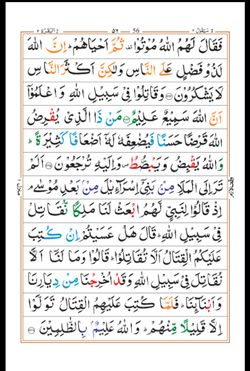 فَقَالَ لَهُمُ اللّٰهُ مُوْتُوْا ثُمَّ اَحْيَاهُمْ ؕ اِنَّ اللّٰهَ
لَذُوْ فَضْلٍ عَلَى النَّاسِ وَلٰكِنَّ اَكْثَرَ النَّاسِ
لَا يَشْكُرُوْنَ وَقَاتِلُوْا فِىْ سَبِيْلِ اللّٰهِ وَاعْلَمُوْٓا
اَنَّ اللّٰهَ سَمِيْعٌ عَلِيْمٌ مَنْ ذَا الَّذِىْ يُقْرِضُ
اللّٰهَ قَرْضًا حَسَنًا فَيُضٰعِفَهٗ لَهٗٓ اَضْعَافًا كَثِيْرَةً ؕ
وَاللّٰهُ يَقْبِضُ وَيَبْصُۜطُ ۪ وَاِلَيْهِ تُرْجَعُوْنَ اَلَمْ
تَرَ اِلَى الْمَلَاِ مِنْۢ بَنِىْٓ اِسْرَآءِيْلَ مِنْۢ بَعْدِ مُوْسٰى ۘ
اِذْ قَالُوْا لِنَبِىٍّ لَّهُمُ ابْعَثْ لَنَا مَلِكًا نُّقَاتِلْ
فِىْ سَبِيْلِ اللّٰهِ ؕ قَالَ هَلْ عَسَيْتُمْ اِنْ كُتِبَ
عَلَيْكُمُ الْقِتَالُ اَلَّا تُقَاتِلُوْا ؕ قَالُوْا وَمَا لَنَآ اَلَّا
نُقَاتِلَ فِىْ سَبِيْلِ اللّٰهِ وَقَدْ اُخْرِجْنَا مِنْ دِيَارِنَا
وَاَبْنَآئِنَا ؕ فَلَمَّا كُتِبَ عَلَيْهِمُ الْقِتَالُ تَوَلَّوْا
اِلَّا قَلِيْلًا مِّنْهُمْ ؕ وَاللّٰهُ عَلِيْمٌۢ بِالظّٰلِمِيْنَ